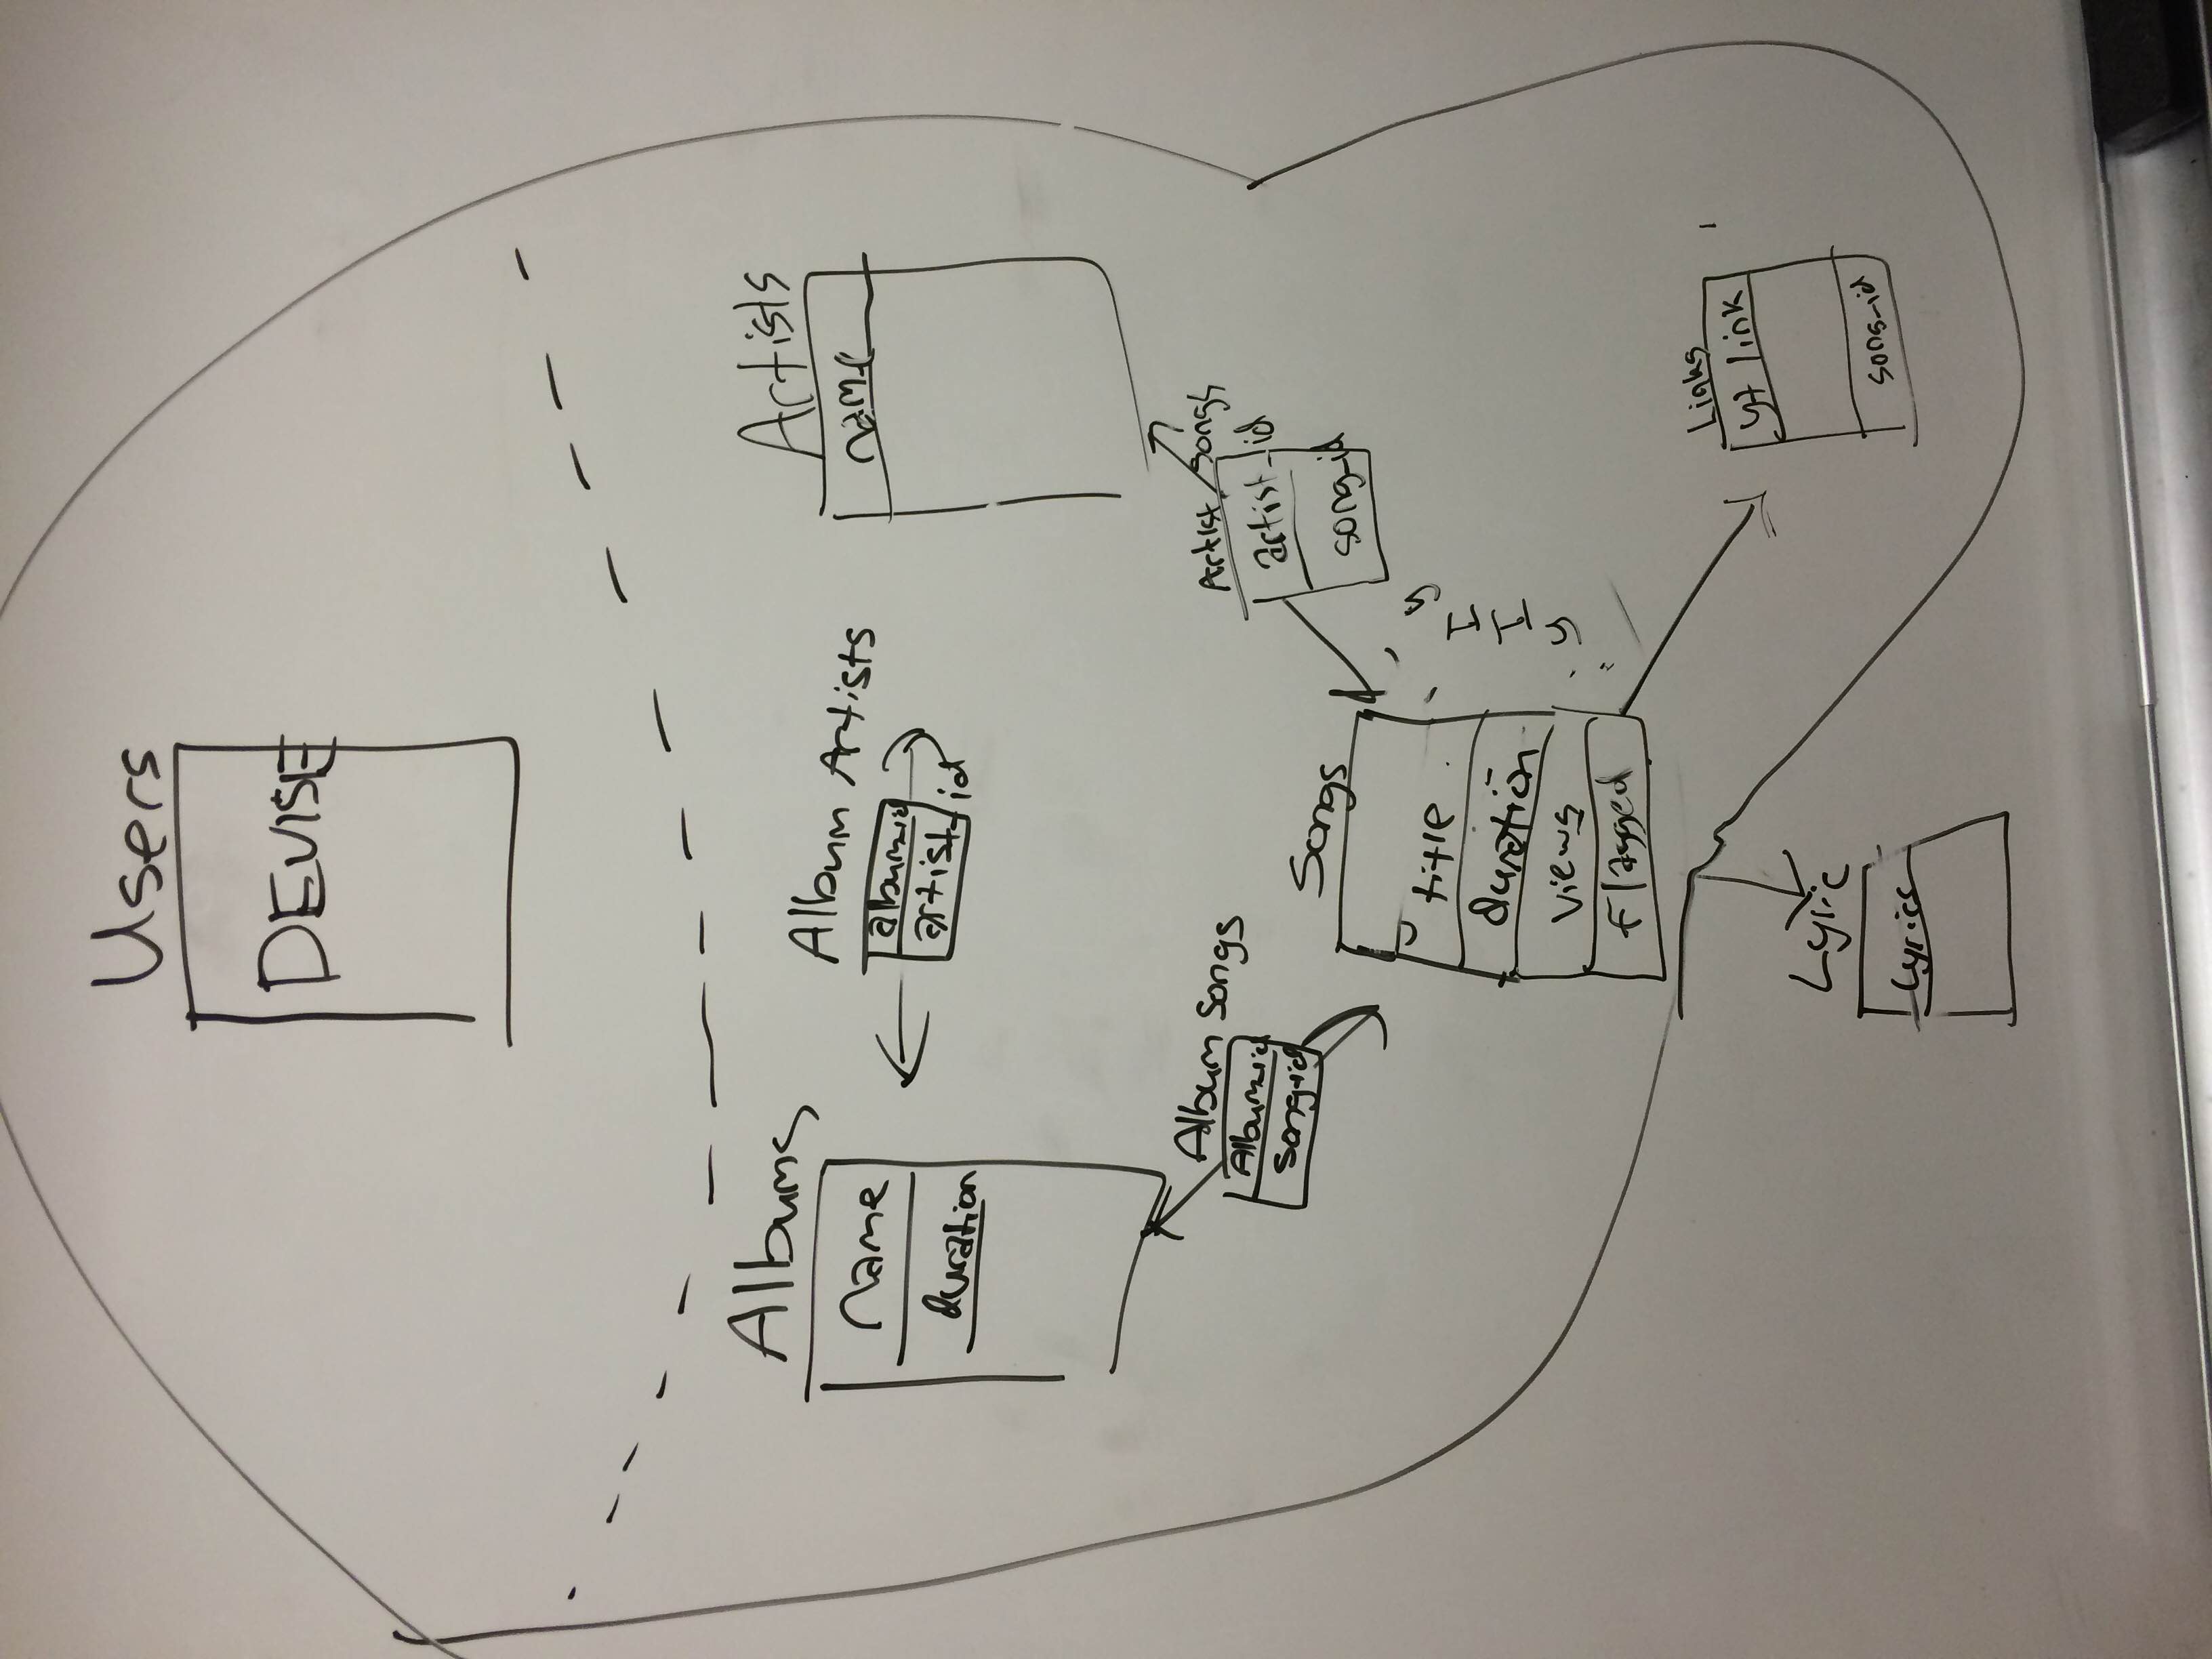 Users
DEVISE
Albums
name
duration
Album Artists
album_id
artist_id
Artists
name
Album Songs
Album_id
song_id
Artist Songs
artist_id
song_id
Songs
title
duration
views
Flagged
Links
yt link
song_id
Lyric
Lyrics